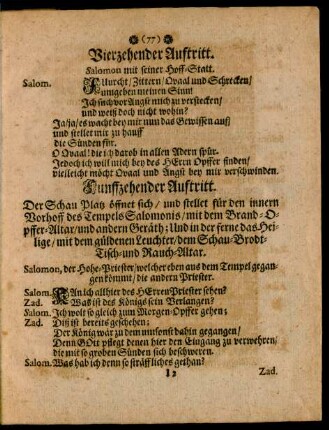 (77)
Vierzehender Auftritt.
Salomon mit seiner Hoff-Statt.
Salom. Furcht/ Zittern/ Qvaal und Schrecken/
umgeben meinen Sinn!
Ich such vor Angst mich zu verstecken/
und weiß doch nicht wohin?
Ja/ja/es wacht bey mir nun das Gewissen auf/
und stellet mir zu hauff
die Sünden für.
O Qvaal! die ich darob in allen Adern spür.
Jedoch ich will mich bey des HErrn Opffer finden/
vielleicht möcht Qvaal und Angst bey mir verschwinden.
Funffzehender Auftritt.
Der Schau Platz öffnet sich/ und stellet für den innern
Vorhoff des Tempels Salomonis/ mit dem Brand-O-
pffer-Altar/und andern Geräth; Und in der ferne das Hei-
lige/ mit dem güldenen Leuchter/ dem Schau-Brodt-
Tisch-und Rauch-Altar.
Salomon, der Hohe-Priester/welcher eben aus dem Tempel gegan-
gen kömmt/ die andern Priester.
Salom. KAn ich allhier des HErren Priester sehen?
Zad. Was ist des Königs sein Verlangen?
Salom. Ich wolt so gleich zum Morgen-Opffer gehen;
Zad. Diß ist bereits geschehen;
Der König wär zu dem umsonst dahin gegangen/
Denn GOtt pflegt denen hier den Eingang zu verwehren/
die mit so groben Sünden sich beschweren.
Salom. Was hab ich denn so sträffliches gethan?
Zad.